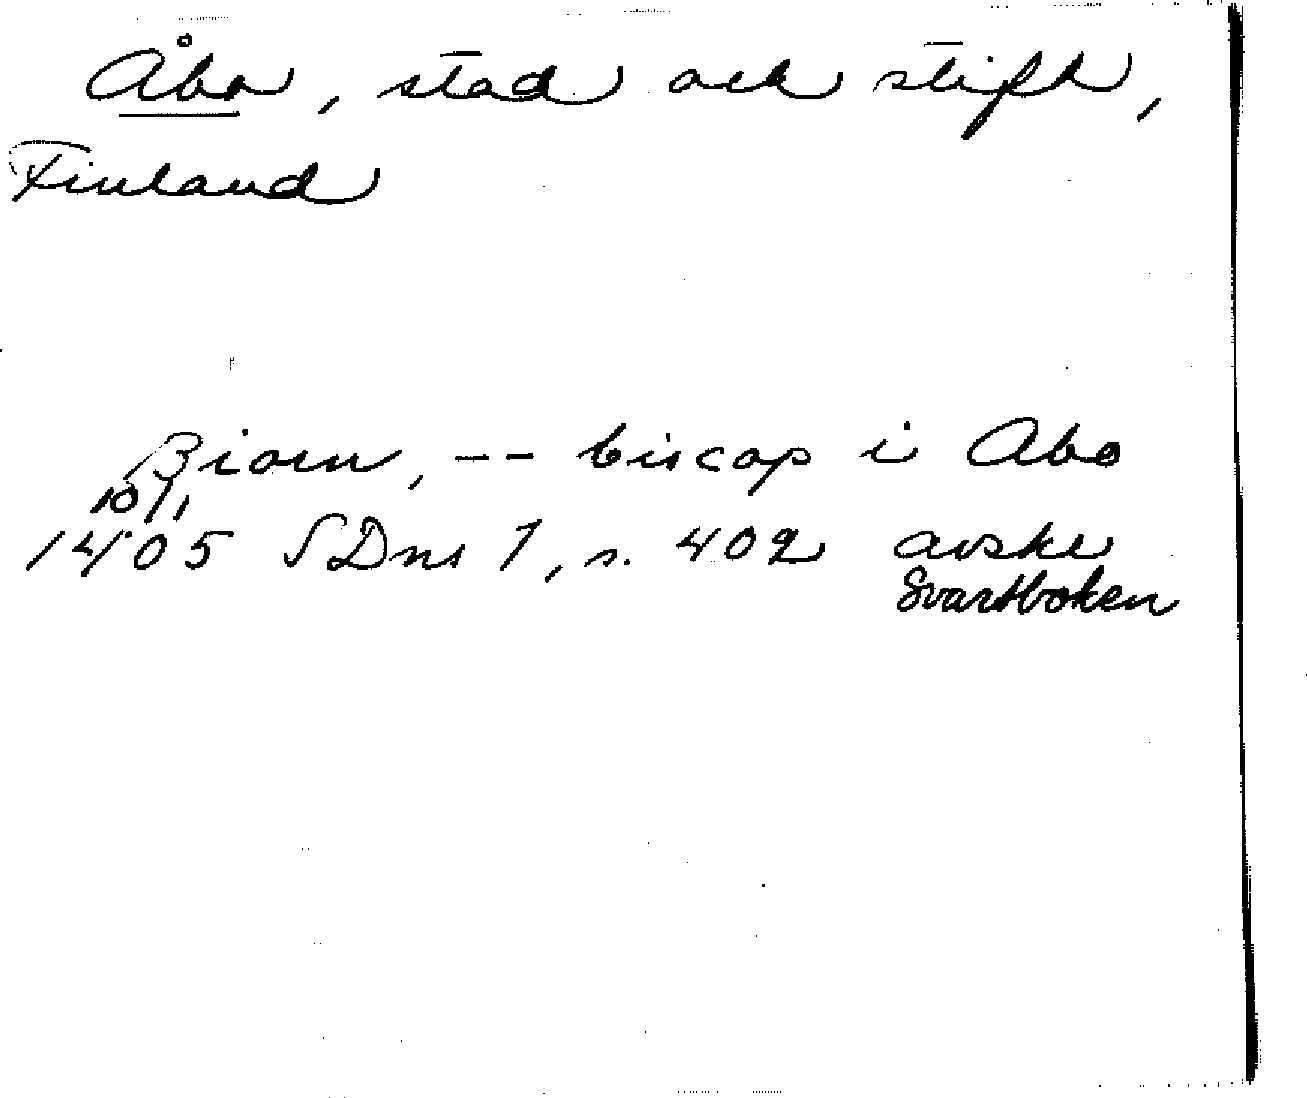 Åbo, stad och stift,
Finland
Biorn, -- biscop i Abo
10/1
1405 SDns 1, s. 402 avskr
Svartboken